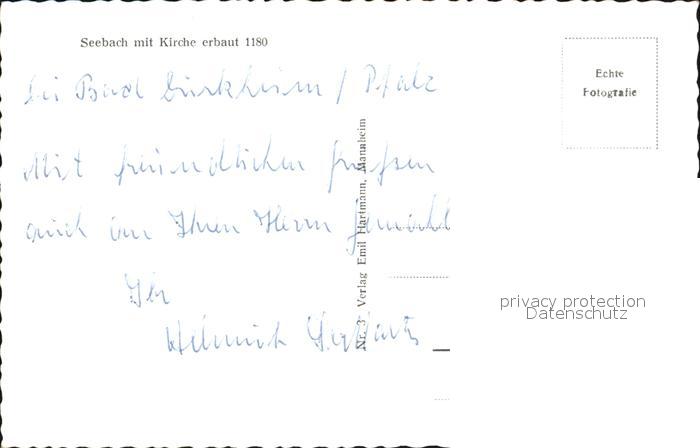 Seebach mit Kirche erbaut 1180
bei Bad Dürkheim / Pfalz
Echte
Fotografie
Mit freundlichen Grüßen
auch an Ihren Herrn Gemahl
Ihr
Helmuth
Nr. 3 Verlag Emil Hartmann, Mannheim
privacy protection
Datenschutz